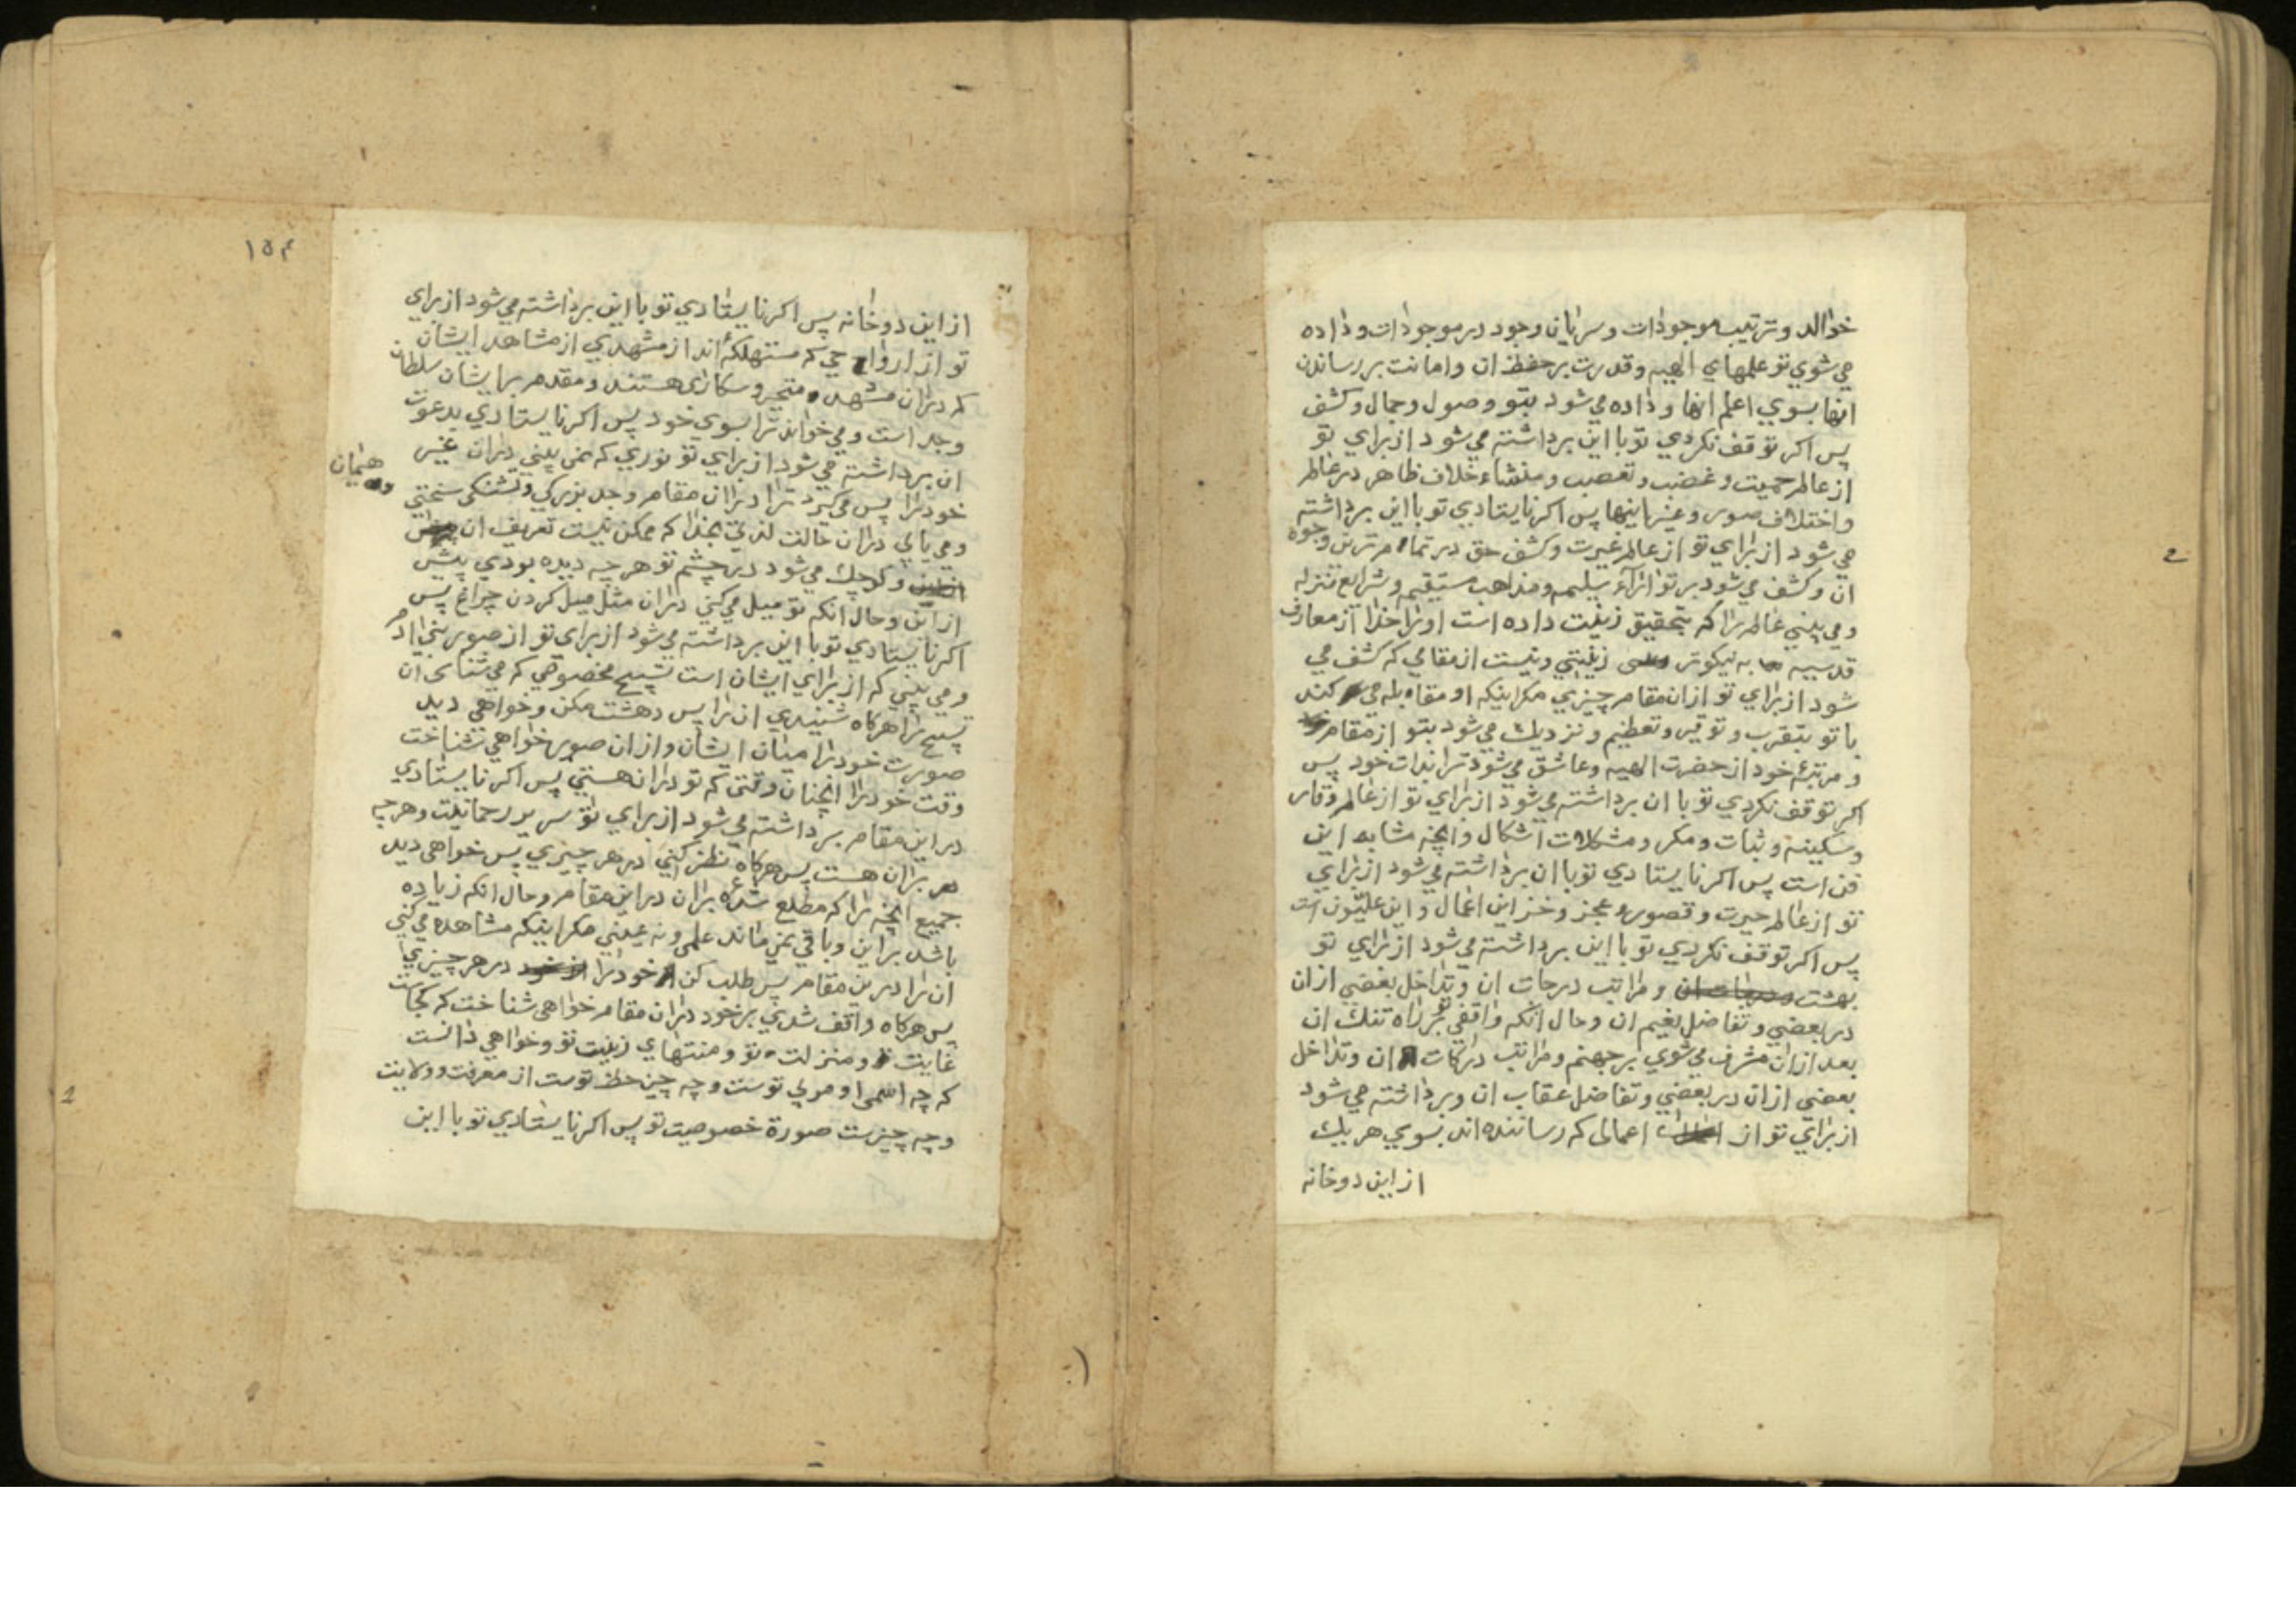 خوالد وترتیب موجودات وسرایان وجود در موجودات وداده
می شوی تو علمهای الهیه وقدرت بر حفظ ان وامانت بر رساندن
انها بسوی اعلم انها وداده می شود بتو وصول وجمال وکشف
پس اکر توقف نکردی تو با این برداشته می شود از برای تو
از عالم حمیت وغضب وتعصب ومنشاء خلاف ظاهر در عالم
واختلاف صور وغیر اینها پس اکر نایستادی تو با این برداشته
می شود از برای تو از عالم غیرت وکشف حق در تمامترین وجوه
ان وکشف می شود بر تو اراء سلیمه ومذاهب مستقیم وشرایع منزله
ومی بینی عالم را که بتحقیق زینت داده است او را خدا از معارف
قدسیه به نیکوتر زینتی ونیست از مقامی که کشف می
شود از برای تو از ان مقام چیزی مکر اینکه او مقابله می کند
با تو بتقرب وتوقیر وتعظیم ونزدیک می شود بتو از مقام
ومرتبهٔ خود از حضرت الهیه وعاشق می شود ترا بذات خود پس
اکر توقف نکردی تو با ان برداشته می شود از برای تو از عالم وقار
وسکینه وثبات ومکر ومشکلات اشکال وانچه مشابه این
فن است پس اکر نایستادی تو با ان برداشته می شود از برای
تو از عالم حیرت وقصور وعجز وخزاین اعمال واین علیّون است
پس اکر توقف نکردی تو با این برداشته می شود از برای تو
بهشت ومراتب درجات ان وتداخل بعضی از ان
در بعضی وتفاضل نعیم ان وحال انکه واقفی تو بر راه تنک ان
بعد از ان مشرف می شوی بر جهنم ومراتب درکات ان وتداخل
بعضی از ان در بعضی وتفاضل عقاب ان وبرداشته می شود
از برای تو از اعمالی که رساننده اند بسوی هر یک
از این دو خانه
١٥٤
از این دو خانه پس اکر نایستادی تو با این برداشته می شود از برای
تو از ارواحی که مستهلکهٔ اند از مشهدی از مشاهد ایشان
که در ان مشهد متحیر وسکاری هستند ومقدم بر ایشان سلطان
وجد است ومی خواند ترا بسوی خود پس اکر نایستادی بدعوت
ان برداشته می شود از برای تو نوری که نمی بینی در ان غیر
خود را پس می کیرد ترا در ان مقام وجد بزرکی وتشنکی سختی
هیمان
ومی یابی در ان حالت لذتی بخدا که ممکن نیست تعریف ان
وکوچک می شود در چشم تو هر چه دیده بودی پیش
از این وحال انکه تو میل می کنی در ان مثل میل کردن چراغ پس
اکر نایستادی تو با این برداشته می شود از برای تو از صور بنی ادم
ومی بینی که از برای ایشان است تسبیح مخصوصی که می شناسی ان
تسبیح را هرکاه شنیدی ان را پس دهشت مکن وخواهی دید
صورت خود را میان ایشان واز ان صور خواهی شناخت
وقت خود را انچنان وقتی که تو در ان هستی پس اکر نایستادی
در این مقام برداشته می شود از برای تو سریر رحمانیت وهر چه
بر ان هست پس هرکاه نظر کنی در هر چیزی پس خواهی دید
جمیع انچه را که مطلع شدهٔ بر ان در این مقام وحال انکه زیاده
باشد بر این وباقی نمی ماند علمی ونه عینی مکر اینکه مشاهده می کنی
ان را در این مقام پس طلب کن خود را در هر چیزی
پس هرکاه واقف شدی بر خود در ان مقام خواهی شناخت که کجاست
غایت ومنزلت تو ومنتهای زینت تو وخواهی دانست
که چه اسمی او مربی توست وچه چیز حظ توست از معرفت وولایت
وچه چیز ست صورة خصوصیت تو پس اکر نایستادی تو با این